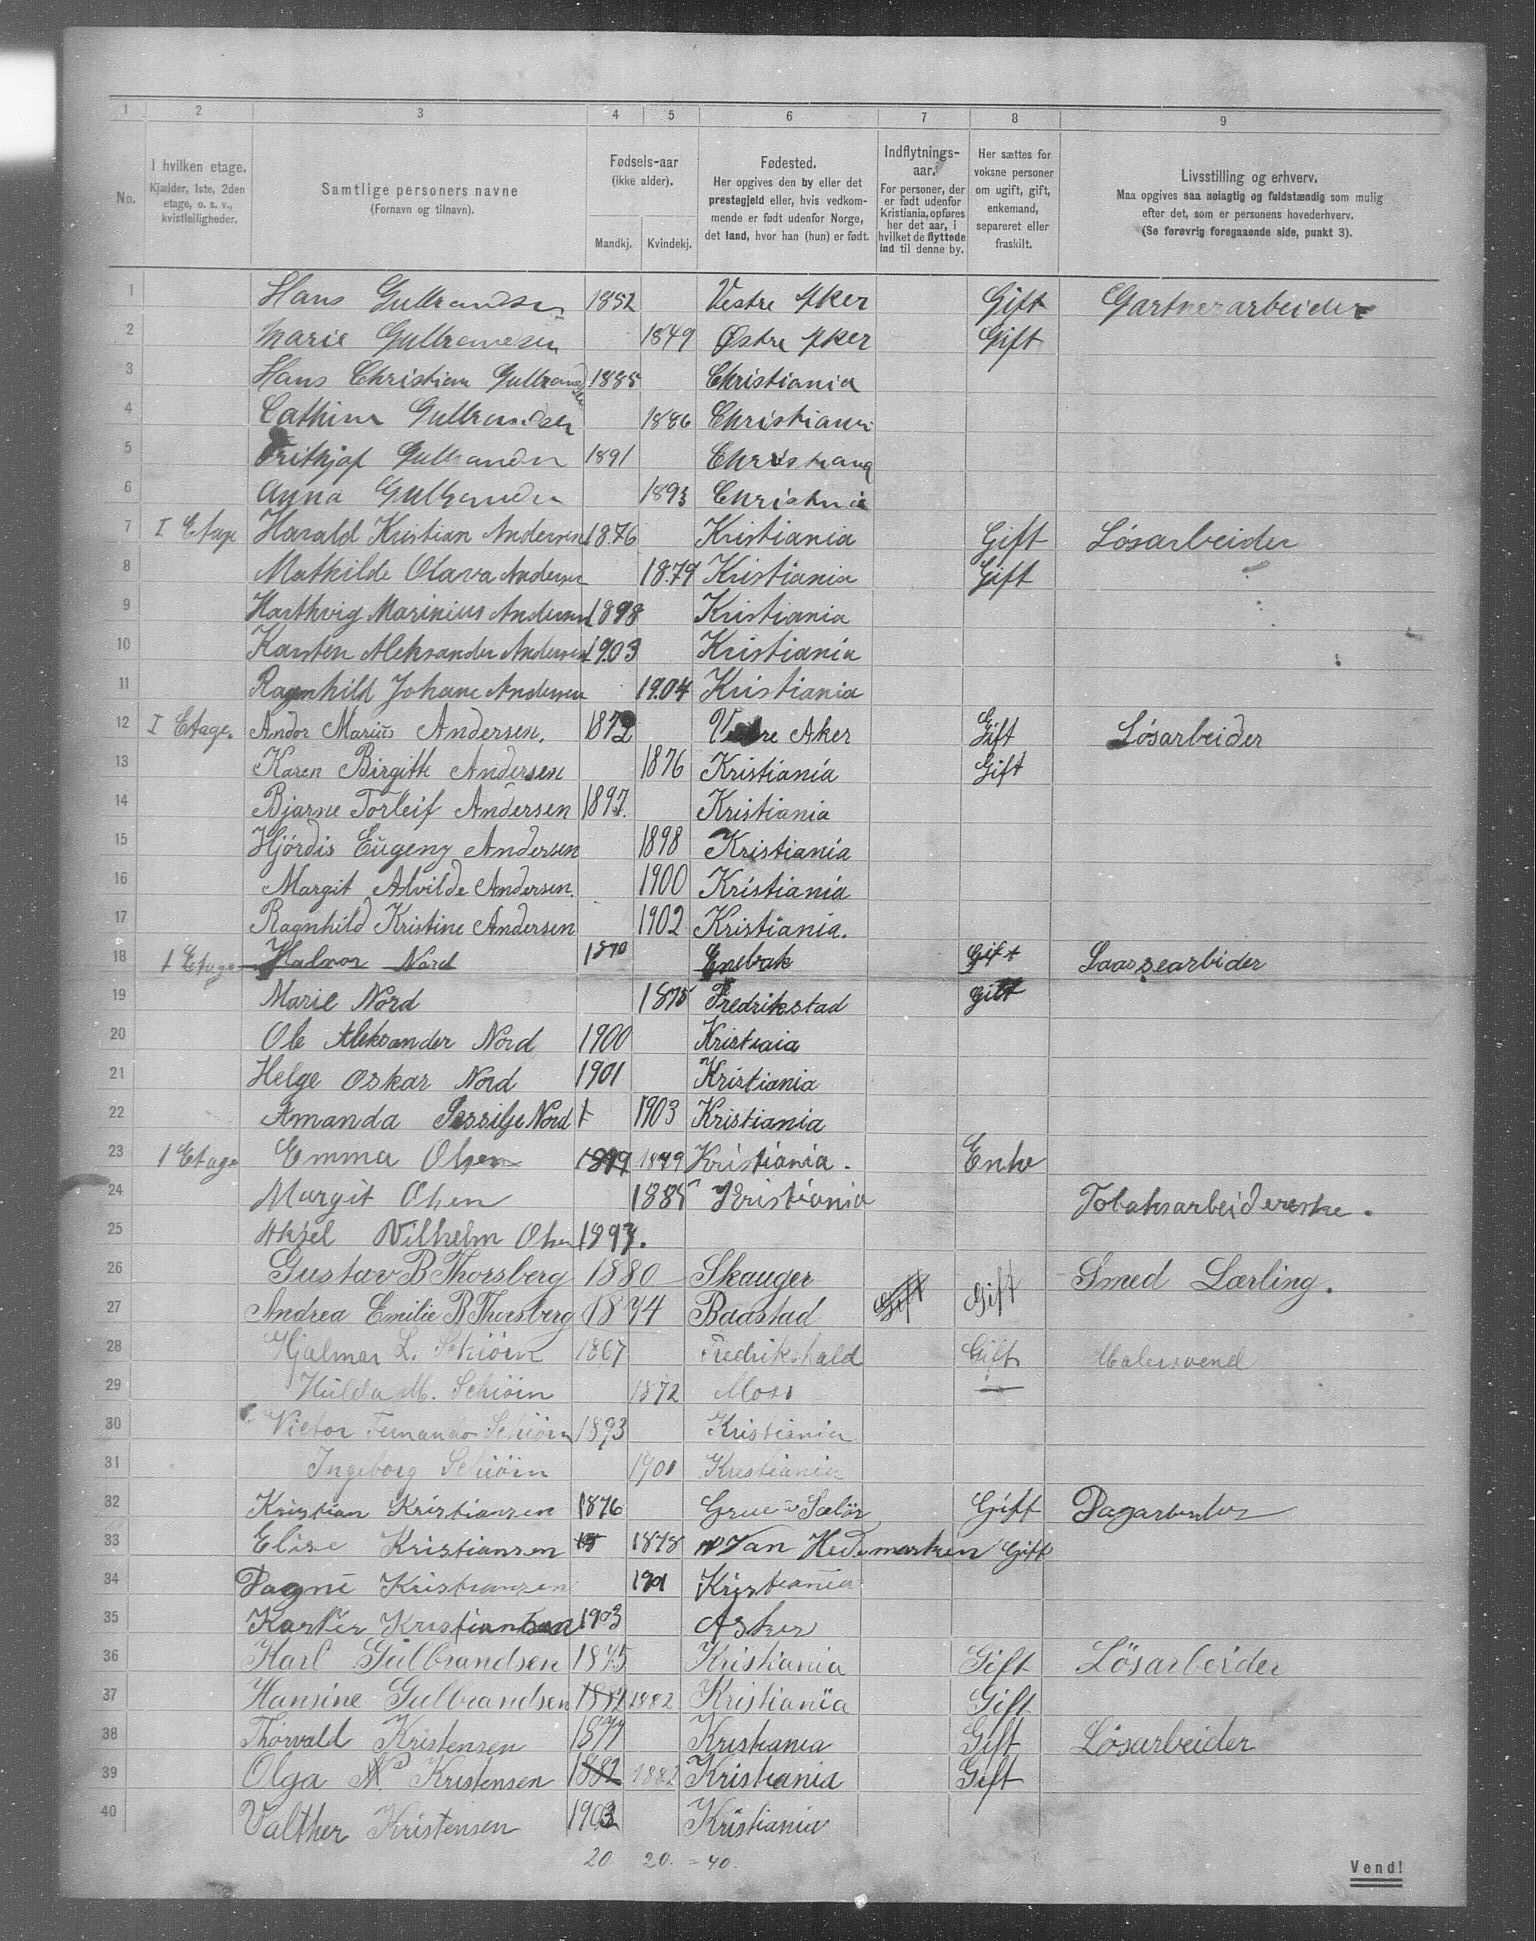 1 2 3 4 5 6 7 8 9
No.
I hvilken etage.
Kjælder, 1ste, 2den
etage, o. s. v.,
kvistleiligheder.
Samtlige personers navne
(Fornavn og tilnavn).
Fødsels-aar
(ikke alder).
Mandkj. Kvindekj.
Fødested.
Her opgives den by eller det
prestegjeld eller, hvis vedkom-
mende er født udenfor Norge,
det land, hvor han (hun) er født.
Indflytnings-
aar.
For personer, der
er født udenfor
Kristiania, opføres
her det aar, i
hvilket de flyttede
ind til denne by.
Her sættes for
voksne personer
om ugift, gift,
enkemand,
separeret eller
fraskilt.
Livsstilling og erhverv.
Maa opgives saa nøiagtig og fuldstændig som mulig
efter det, som er personens hovederhverv.
(Se forøvrig foregaaende side, punkt 3).
1 Hans Gulbrandsen 1852 Vestre Aker Gift Gartnerarbeider
2 Marie Gulbrandsen 1849 Østre Aker Gift
3 Hans Christian Gulbrandsen 1885 Christiania
4 Cathina Gulbrandsen 1886 Christiania
5 Frithjof Gulbrandsen 1891 Christiania
6 Anna Gulbrandsen 1893 Christiania
7 I Etage Harald Kristian Andersen 1876 Kristiania Gift Løsarbeider
8 Mathilde Olava Andersen 1879 Kristiania Gift
9 Harthvig Marinius Andersen 1898 Kristiania
10 Karsten Aleksander Andersen 1903 Kristiania
11 Ragnhild Johane Andersen 1904 Kristiania
12 I Etage. Andor Marius Andersen. 1872 Vestre Aker Gift Løsarbeider
13 Karen Birgitte Andersen 1876 Kristiania Gift
14 Bjarne Torleif Andersen 1897. Kristiania
15 Hjórdis Eugeny Andersen 1898 Kristiania
16 Margit Alvilde Andersen. 1900 Kristiania
17 Ragnhild Kristine Andersen 1902 Kristiania.
18 1 Etage Halvor Nord 1870 Enebak Gift Laassearbider
19 Marie Nord 1875 Fredrikstad Gift
20 Ole Aleksander Nord 1900 Kristiaia
21 Helge Oskar Nord 1901 Kristiania
22 Amanda Nord 1903 Kristiania
23 1 Etage Emma Olsen 1849 1849 Kristiania. Enke
24 Margit Olsen 1885 Kristiania Tobaksarbeidereske.
25 Aksel Vilhelm Olsen 1893.
26 Gustav B Thorsberg 1880 Skauger Smed Lærling.
27 Andrea Emilie B Thorsberg 1874 Baastad Gift Gift
28 Hjalmar L. Schiöin 1867 Fredrikshald Gift Malersvend
29 Hulda M. Schiöin 1872 Moss —
30 Victor Fernando Schiöin 1893 Kristiania
31 Ingeborg Schiöin 1901 Kristiania
32 Kristian Kristiansen 1876 Grue Solör Gift Dagarbeider
33 Elise Kristiansen 18 1878 Van Hedemarken Gift
34 Dagni Kristiansen 1901 Kristiania
35 Kristiansen 1903 Asker
36 Karl Gulbrandsen 1875 Kristiania Gift Løsarbeider
37 Hansine Gulbrandsen 1882 1882 Kristiania Gift
38 Thorvald Kristensen 1877 Kristiania Gift Løsarbeider
39 Olga Kristensen 1882 1882 Kristiania Gift
40 Valther Kristensen 1903 Kristiania
20 20. = 40.
Vend!